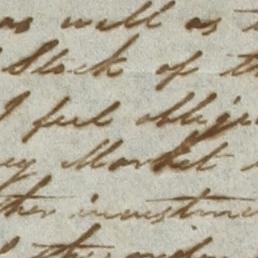 as well as
Stock of th
I feel oblige
ey Market
ther investme